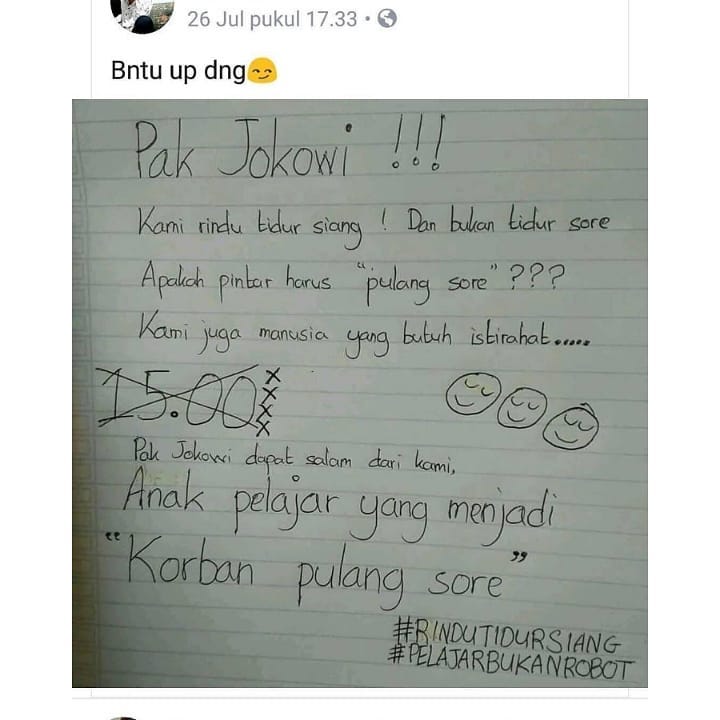 26 Jul pukul 17.33 •
Bntu up dng😏
Pak Jokowi !!!
Kami rindu tidur siang ! Dan bukan tidur sore
Apakah pintar harus "pulang sore" ???
Kami juga manusia yang butuh istirahat.....
15.00 xxxx
Pak Jokowi dapat salam dari kami,
Anak pelajar yang menjadi
"Korban pulang sore"
#RINDUTIDURSIANG
#PELAJARBUKANROBOT